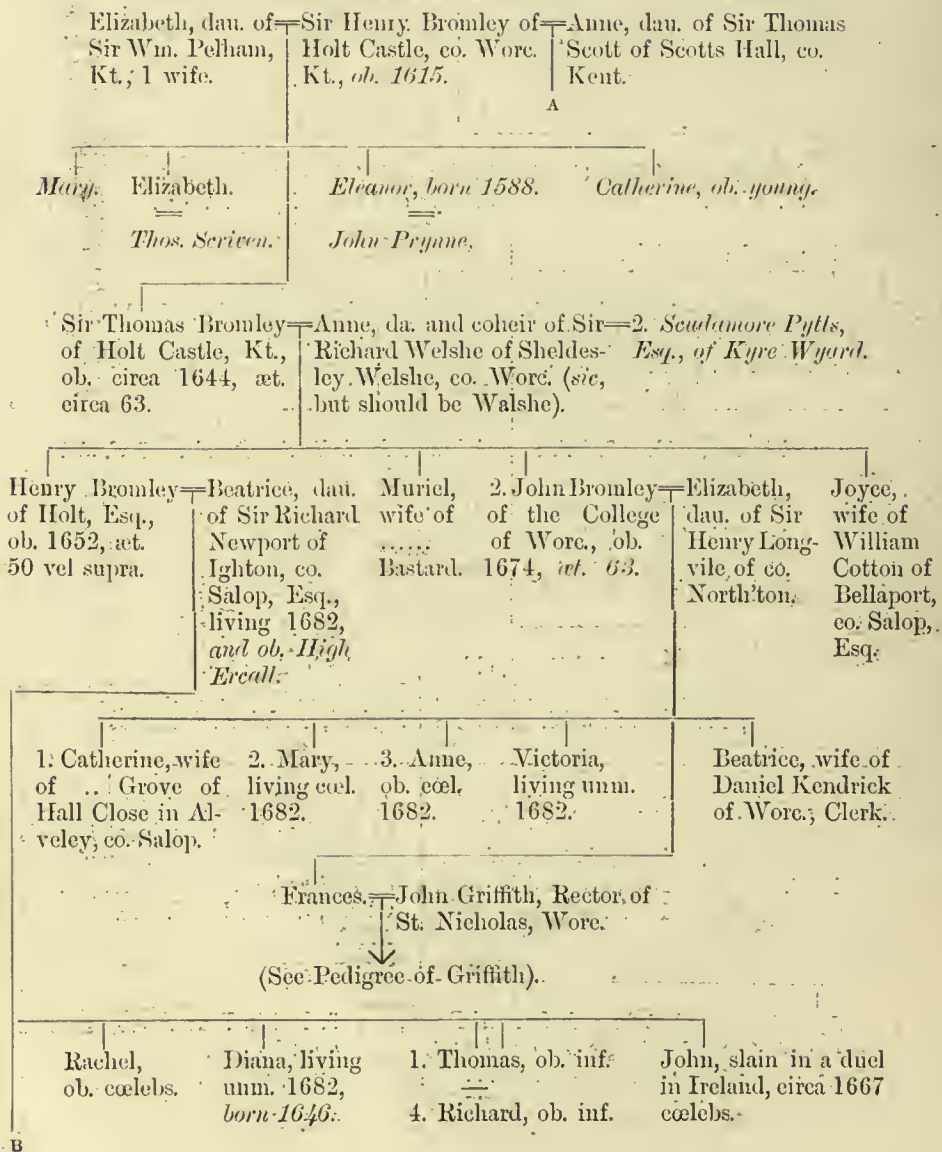 Elizabeth, dau. of
Sir Wm. Pelham,
Kt., 1 wife.
Sir Henry Bromley of
Holt Castle, co. Worc.
Kt., ob. 1615.
Anne, dau. of Sir Thomas
Scott of Scotts Hall, co.
Kent.
A
Mary.
Elizabeth.
Thos. Scriven.
Eleanor, born 1588.
John Prynne.
Catherine, ob. young.
Sir Thomas Bromley
of Holt Castle, Kt.,
ob. circa 1644, æt.
circa 63.
Anne, da. and coheir of Sir
Richard Welshe of Sheldes-
ley Welshe, co. Worc. (sic,
but should be Walshe).
2. Scudamore Pytts,
Esq., of Kyre Wyard.
Henry Bromley
of Holt, Esq.,
ob. 1652, æt.
50 vel supra.
Beatrice, dau.
of Sir Richard
Newport of
Ighton, co.
Salop, Esq.,
living 1682,
and ob. High
Ercall.
Muriel,
wife of
......
Bastard.
2. John Bromley
of the College
of Worc., ob.
1674, æt. 63.
Elizabeth,
dau. of Sir
Henry Long-
vile, of co.
North'ton.
Joyce,
wife of
William
Cotton of
Bellaport,
co. Salop,
Esq.
1. Catherine, wife
of .. Grove of
Hall Close in Al-
veley, co. Salop.
2. Mary,
living cœl.
1682.
3. Anne,
ob. cœl.
1682.
Victoria,
living unm.
1682.
Beatrice, wife of
Daniel Kendrick
of Worc., Clerk.
Frances.
John Griffith, Rector of
St. Nicholas, Worc.
(See Pedigree of Griffith).
Rachel,
ob. cœlebs.
Diana, living
unm. 1682,
born 1646.
1. Thomas, ob. inf.
4. Richard, ob. inf.
John, slain in a duel
in Ireland, circa 1667
cœlebs.
B